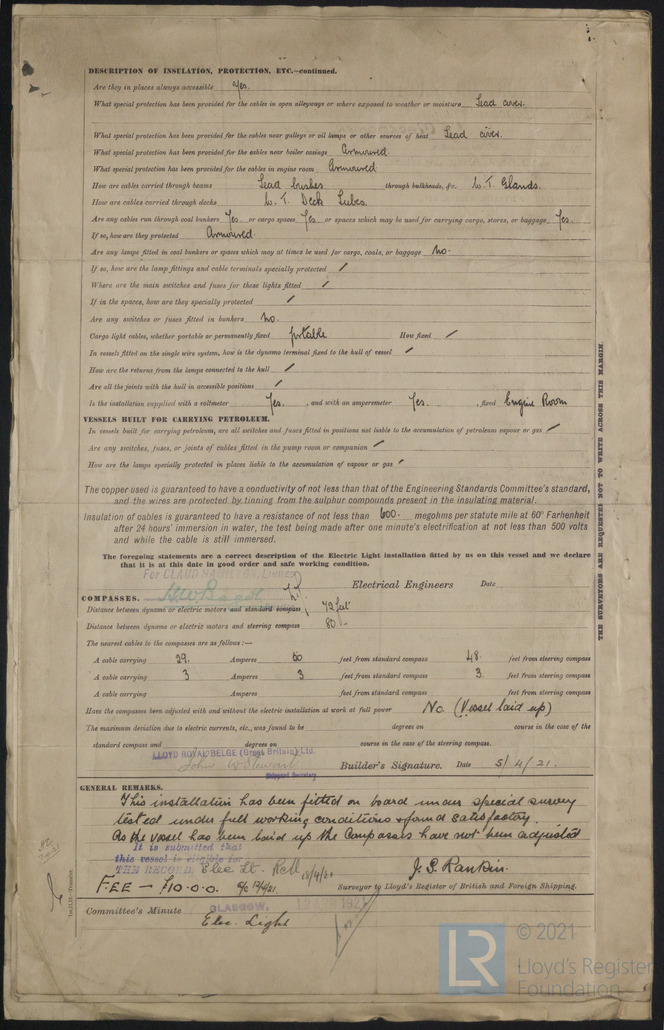 DESCRIPTION OF INSULATION, PROTECTION, ETC.—continued.
Are they in places always accessible Yes.
What special protection has been provided for the cables in open alleyways or where exposed to weather or moisture Lead cover.
What special protection has been provided for the cables near galleys or oil lamps or other sources of heat Lead cover.
What special protection has been provided for the cables near boiler casings Armoured.
What special protection has been provided for the cables in engine room Armoured
How are cables carried through beams Lead bushes through bulkheads, &c. W.T. Glands.
How are cables carried through decks W.T. Deck Tubes.
Are any cables run through coal bunkers Yes or cargo spaces Yes or spaces which may be used for carrying cargo, stores, or baggage Yes.
If so, how are they protected Armoured.
Are any lamps fitted in coal bunkers or spaces which may at times be used for cargo, coals, or baggage No.
If so, how are the lamp fittings and cable terminals specially protected /
Where are the main switches and fuses for these lights fitted /
If in the spaces, how are they specially protected /
Are any switches or fuses fitted in bunkers No.
Cargo light cables, whether portable or permanently fixed portable How fixed /
In vessels fitted on the single wire system, how is the dynamo terminal fixed to the hull of vessel /
How are the returns from the lamps connected to the hull /
Are all the joints with the hull in accessible positions /
Is the installation supplied with a voltmeter Yes. , and with an amperemeter Yes. , fixed Engine Room
VESSELS BUILT FOR CARRYING PETROLEUM.
In vessels built for carrying petroleum, are all switches and fuses fitted in positions not liable to the accumulation of petroleum vapour or gas /
Are any switches, fuses, or joints of cables fitted in the pump room or companion /
How are the lamps specially protected in places liable to the accumulation of vapour or gas /
The copper used is guaranteed to have a conductivity of not less than that of the Engineering Standards Committee's standard,
and the wires are protected by tinning from the sulphur compounds present in the insulating material.
Insulation of cables is guaranteed to have a resistance of not less than 600 megohms per statute mile at 60° Farhenheit
after 24 hours' immersion in water, the test being made after one minute's electrification at not less than 500 volts
and while the cable is still immersed.
The foregoing statements are a correct description of the Electric Light installation fitted by us on this vessel and we declare
that it is at this date in good order and safe working condition.
For CLAUD HAMILTON, Limited
Electrical Engineers Date
COMPASSES.
Distance between dynamo or electric motors and standard compass 72 feet
Distance between dynamo or electric motors and steering compass 80 -
The nearest cables to the compasses are as follows:—
A cable carrying 29. Amperes 50 feet from standard compass 48. feet from steering compass
A cable carrying 3 Amperes 3 feet from standard compass 3. feet from steering compass
A cable carrying Amperes feet from standard compass feet from steering compass
Have the compasses been adjusted with and without the electric installation at work at full power No (Vessel laid up)
The maximum deviation due to electric currents, etc., was found to be degrees on course in the case of the
standard compass and degrees on course in the case of the steering compass.
LLOYD ROYAL BELGE (Great Britain) Ltd.
John W Stewart Builder's Signature. Date 5/4/21.
Secretary
GENERAL REMARKS.
This installation has been fitted on board under special survey
tested under full working conditions & found satisfactory.
As the vessel has been laid up the Compasses have not been adjusted
It is submitted that
this vessel is eligible for
THE RECORD. Elec Lt. 18/4/21
J. S. Rankin.
FEE — £10-0-0. Surveyor to Lloyd's Register of British and Foreign Shipping.
Committee's Minute GLASGOW, 1921
Elec. Light
THE SURVEYORS ARE REQUESTED NOT TO WRITE ACROSS THIS MARGIN.
LR
© 2021
Lloyd's Register
Foundation